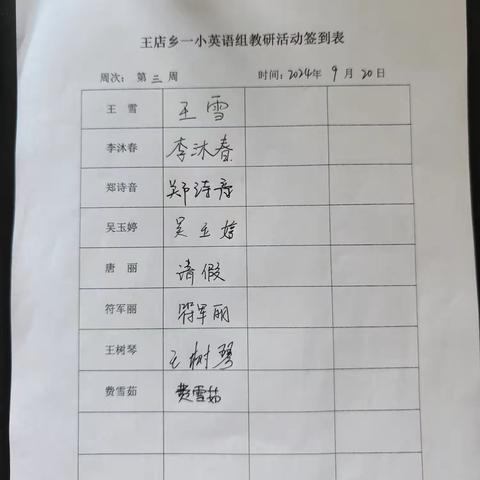 王店乡一小英语组教研活动签到表
周次： 第 三 周 时间：2024年 9 月 20 日
王 雪 王雪
李沐春 李沐春
郑诗音 郑诗音
吴玉婷 吴玉婷
唐 丽 请假
符军丽 符军丽
王树琴 王树琴
费雪茹 费雪茹